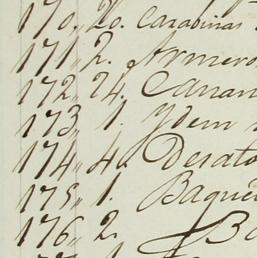 170,, 20. Carabinas
171,, 2. Armero
172,, 24. Canan
173,, 1. Ydem
174,, 4. Desato
175,, 1. Baque
176,, 2.